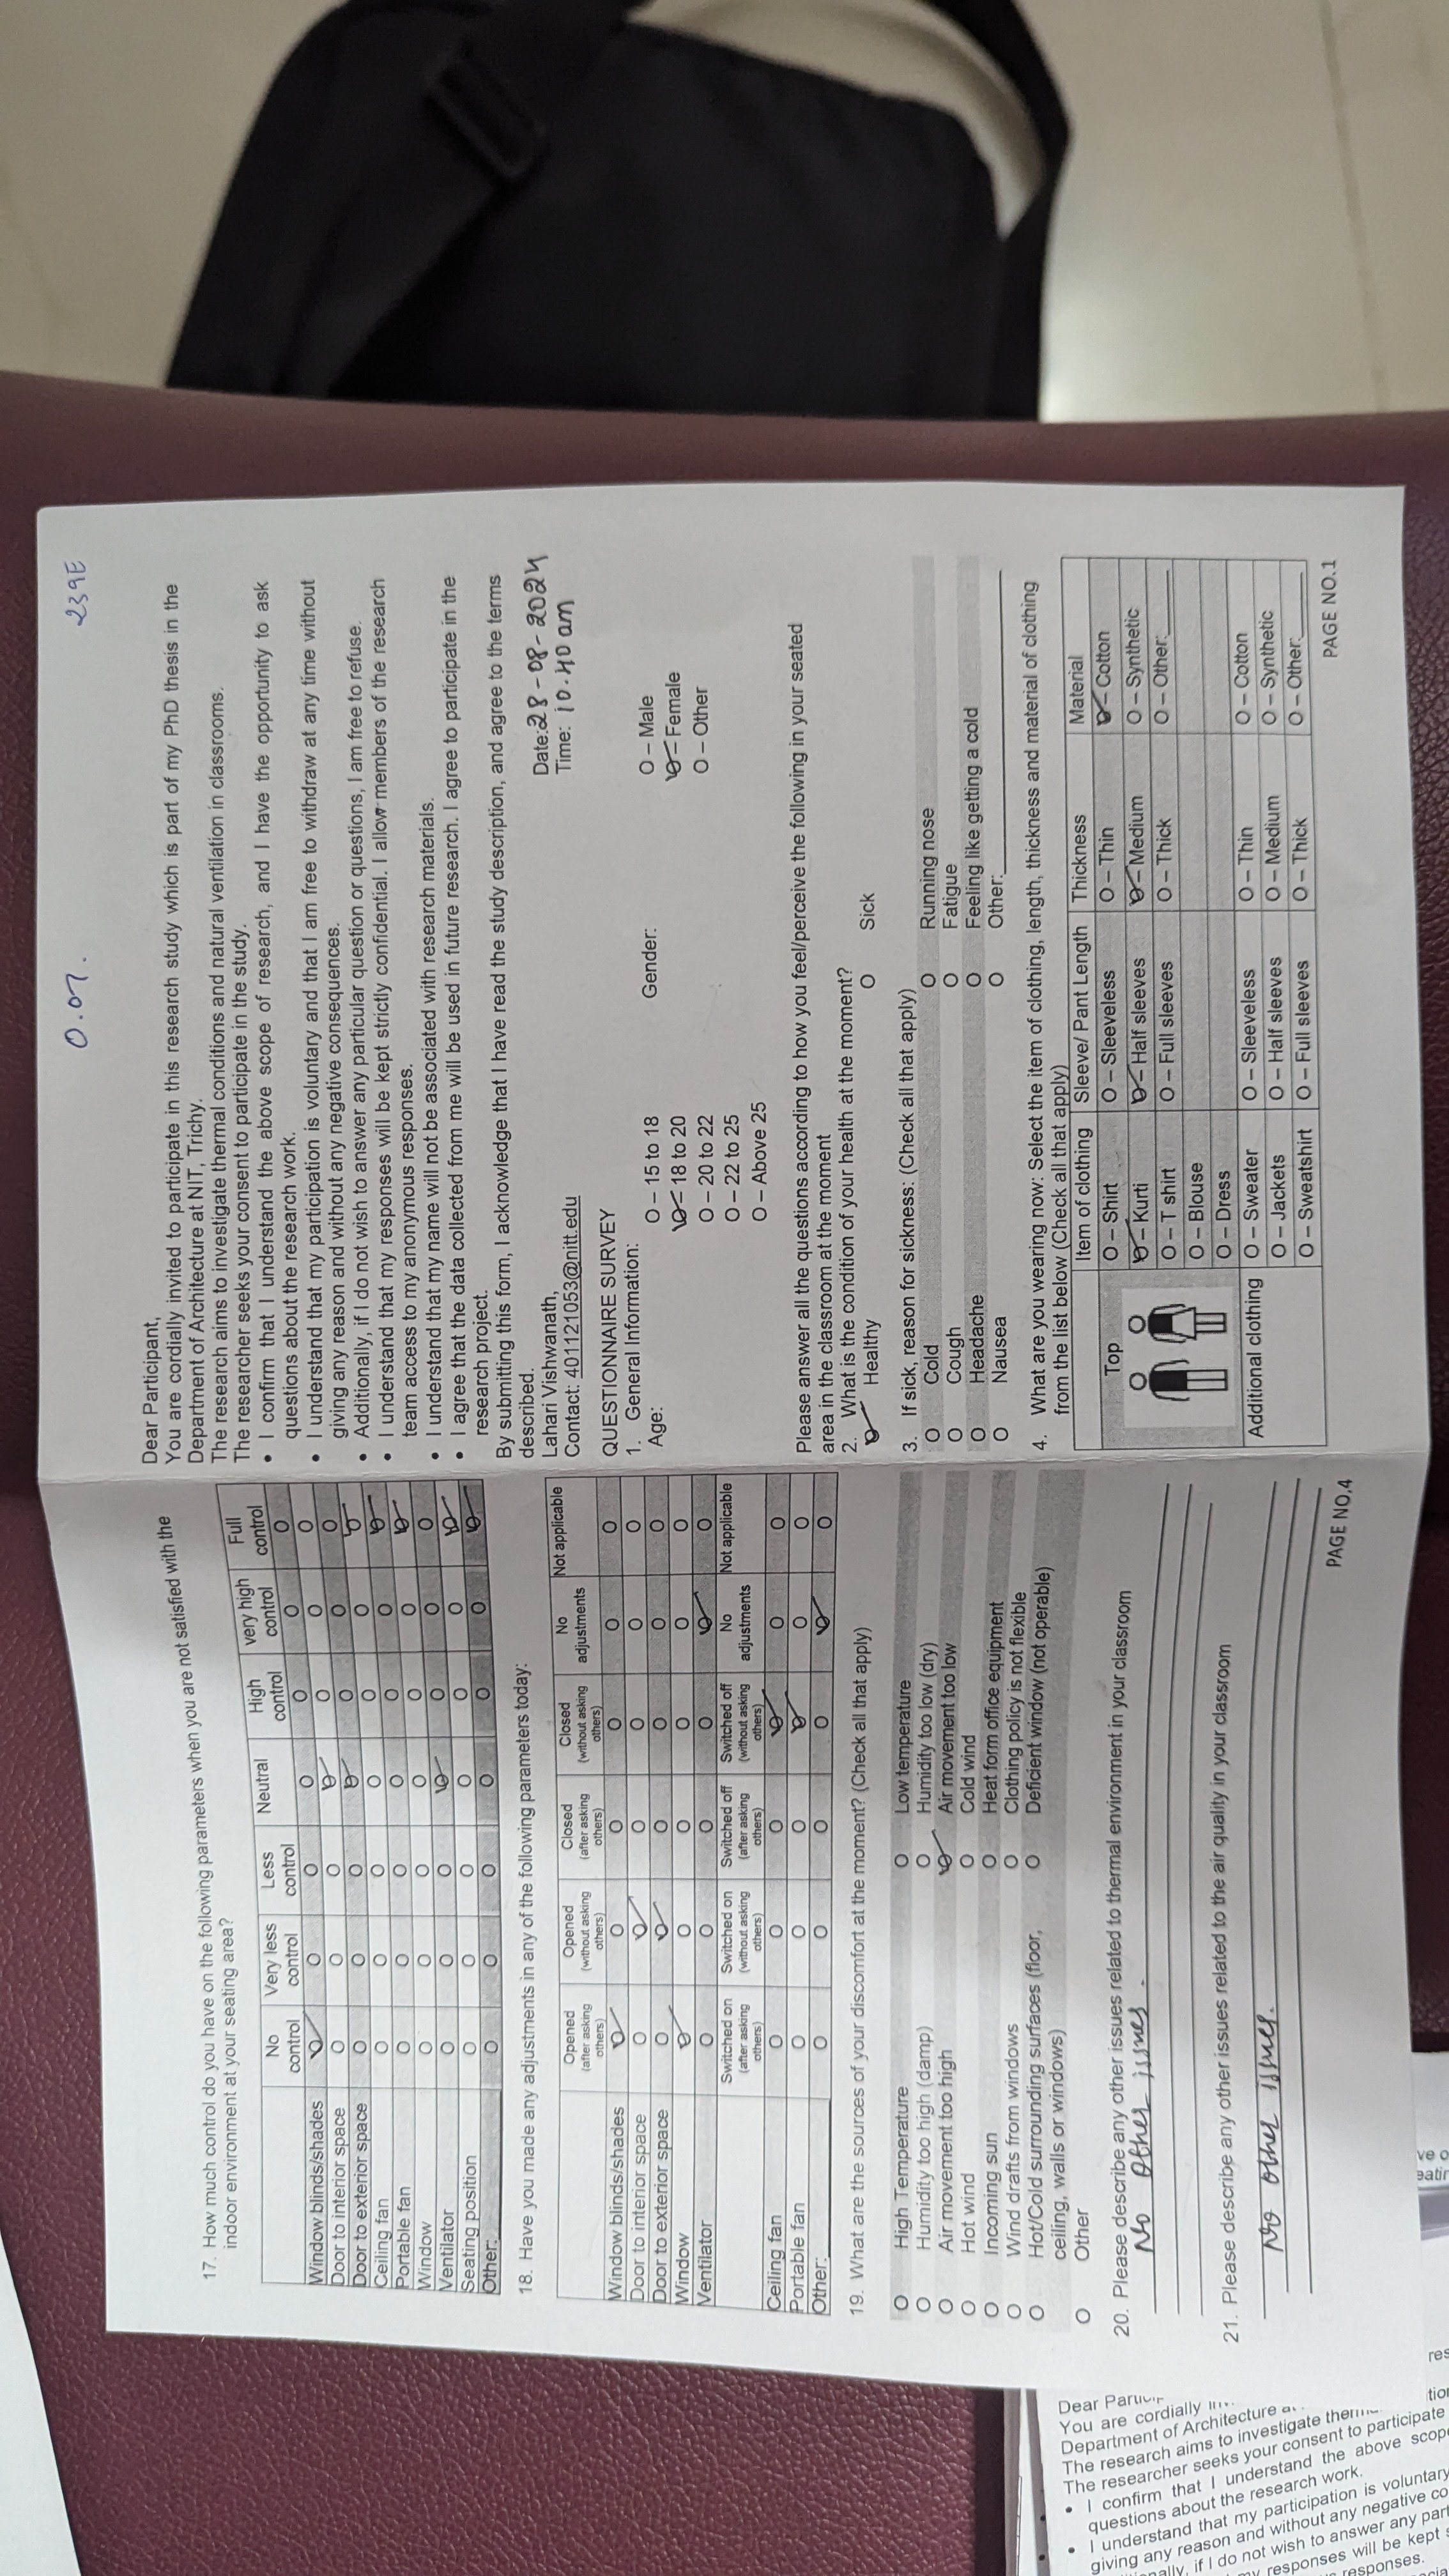 17. How much control do you have on the following parameters when you are not satisfied with the
indoor environment at your seating area?
No control Very less control Less control Neutral High control very high control Full control
Window blinds/shades O O O O O O O
Door to interior space O O O O O O O
Door to exterior space O O O O O O O
Ceiling fan O O O O O O O
Portable fan O O O O O O O
Window O O O O O O O
Ventilator O O O O O O O
Seating position O O O O O O O
Other: O O O O O O O
18. Have you made any adjustments in any of the following parameters today:
Opened (after asking others) Opened (without asking others) Closed (after asking others) Closed (without asking others) No adjustments Not applicable
Window blinds/shades O O O O O O
Door to interior space O O O O O O
Door to exterior space O O O O O O
Window O O O O O O
Ventilator O O O O O O
Switched on (after asking others) Switched on (without asking others) Switched off (after asking others) Switched off (without asking others) No adjustments Not applicable
Ceiling fan O O O O O O
Portable fan O O O O O O
Other: O O O O O O
19. What are the sources of your discomfort at the moment? (Check all that apply)
O High Temperature O Low temperature
O Humidity too high (damp) O Humidity too low (dry)
O Air movement too high O Air movement too low
O Hot wind O Cold wind
O Incoming sun O Heat form office equipment
O Wind drafts from windows O Clothing policy is not flexible
O Hot/Cold surrounding surfaces (floor, O Deficient window (not operable)
ceiling, walls or windows)
O Other
20. Please describe any other issues related to thermal environment in your classroom
No Other issues.
21. Please describe any other issues related to the air quality in your classroom
No other issues.
PAGE NO.4
0.07. 239E
Dear Participant,
You are cordially invited to participate in this research study which is part of my PhD thesis in the
Department of Architecture at NIT, Trichy.
The research aims to investigate thermal conditions and natural ventilation in classrooms.
The researcher seeks your consent to participate in the study.
• I confirm that I understand the above scope of research, and I have the opportunity to ask
questions about the research work.
• I understand that my participation is voluntary and that I am free to withdraw at any time without
giving any reason and without any negative consequences.
• Additionally, if I do not wish to answer any particular question or questions, I am free to refuse.
• I understand that my responses will be kept strictly confidential. I allow members of the research
team access to my anonymous responses.
• I understand that my name will not be associated with research materials.
• I agree that the data collected from me will be used in future research. I agree to participate in the
research project.
By submitting this form, I acknowledge that I have read the study description, and agree to the terms
described.
Lahari Vishwanath, Date: 28-08-2024
Contact: 401121053@nitt.edu Time: 10.40 am
QUESTIONNAIRE SURVEY
1. General Information:
Age: O – 15 to 18 Gender: O – Male
O – 18 to 20 O – Female
O – 20 to 22 O – Other
O – 22 to 25
O – Above 25
Please answer all the questions according to how you feel/perceive the following in your seated
area in the classroom at the moment
2. What is the condition of your health at the moment?
O Healthy O Sick
3. If sick, reason for sickness: (Check all that apply)
O Cold O Running nose
O Cough O Fatigue
O Headache O Feeling like getting a cold
O Nausea O Other:
4. What are you wearing now: Select the item of clothing, length, thickness and material of clothing
from the list below (Check all that apply)
Item of clothing Sleeve/ Pant Length Thickness Material
Top O – Shirt O – Sleeveless O – Thin O – Cotton
O – Kurti O – Half sleeves O – Medium O – Synthetic
O – T shirt O – Full sleeves O – Thick O – Other:
O – Blouse
O – Dress
Additional clothing O – Sweater O – Sleeveless O – Thin O – Cotton
O – Jackets O – Half sleeves O – Medium O – Synthetic
O – Sweatshirt O – Full sleeves O – Thick O – Other:
PAGE NO.1
Dear
You are cordially
Department of Architecture
The research aims to investigate
The researcher seeks your consent to participate
• I confirm that I understand the above
questions about the research work.
• I understand that my participation is voluntary
giving any reason and without any negative
if I do not wish to answer any
responses will be kept
responses.